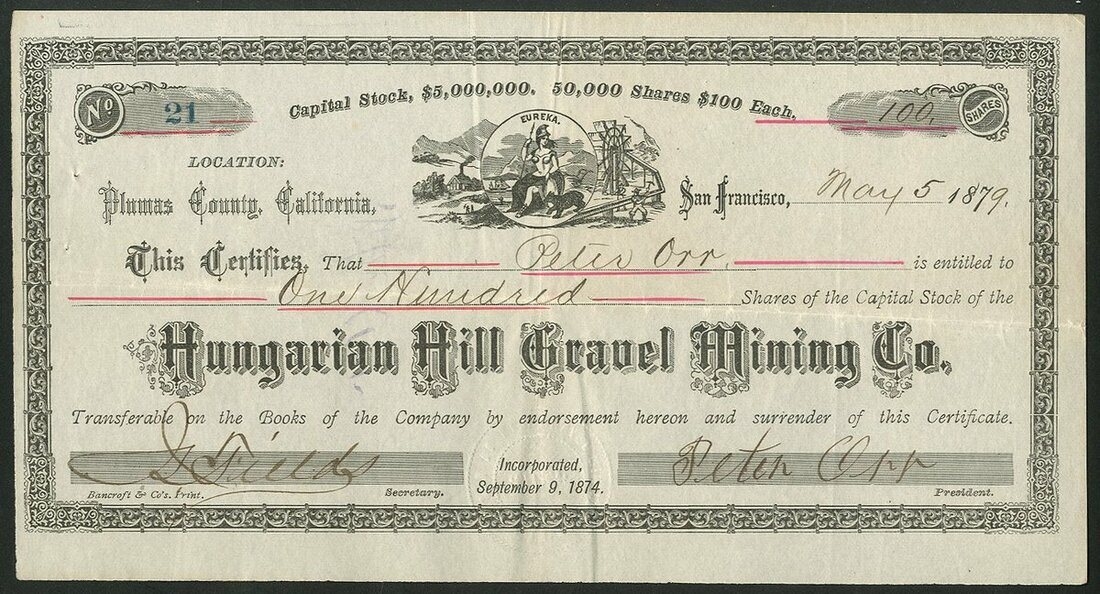 Capital Stock, $5,000,000. 50,000 Shares $100 Each.
No 21
100. SHARES
EUREKA.
LOCATION:
Plumas County, California,
San Francisco, May 5 1879.
This Certifies, That Peter Orr, is entitled to
One Hundred Shares of the Capital Stock of the
Hungarian Hill Gravel Mining Co.
Transferable on the Books of the Company by endorsement hereon and surrender of this Certificate.
Fields
Peter Orr
Incorporated,
September 9, 1874.
Bancroft & Co's. Print.
Secretary.
President.